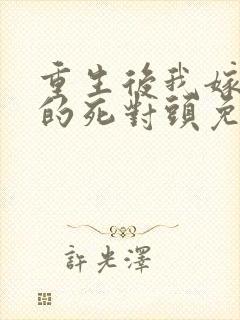 重生後我嫁
的死對頭免
許光澤